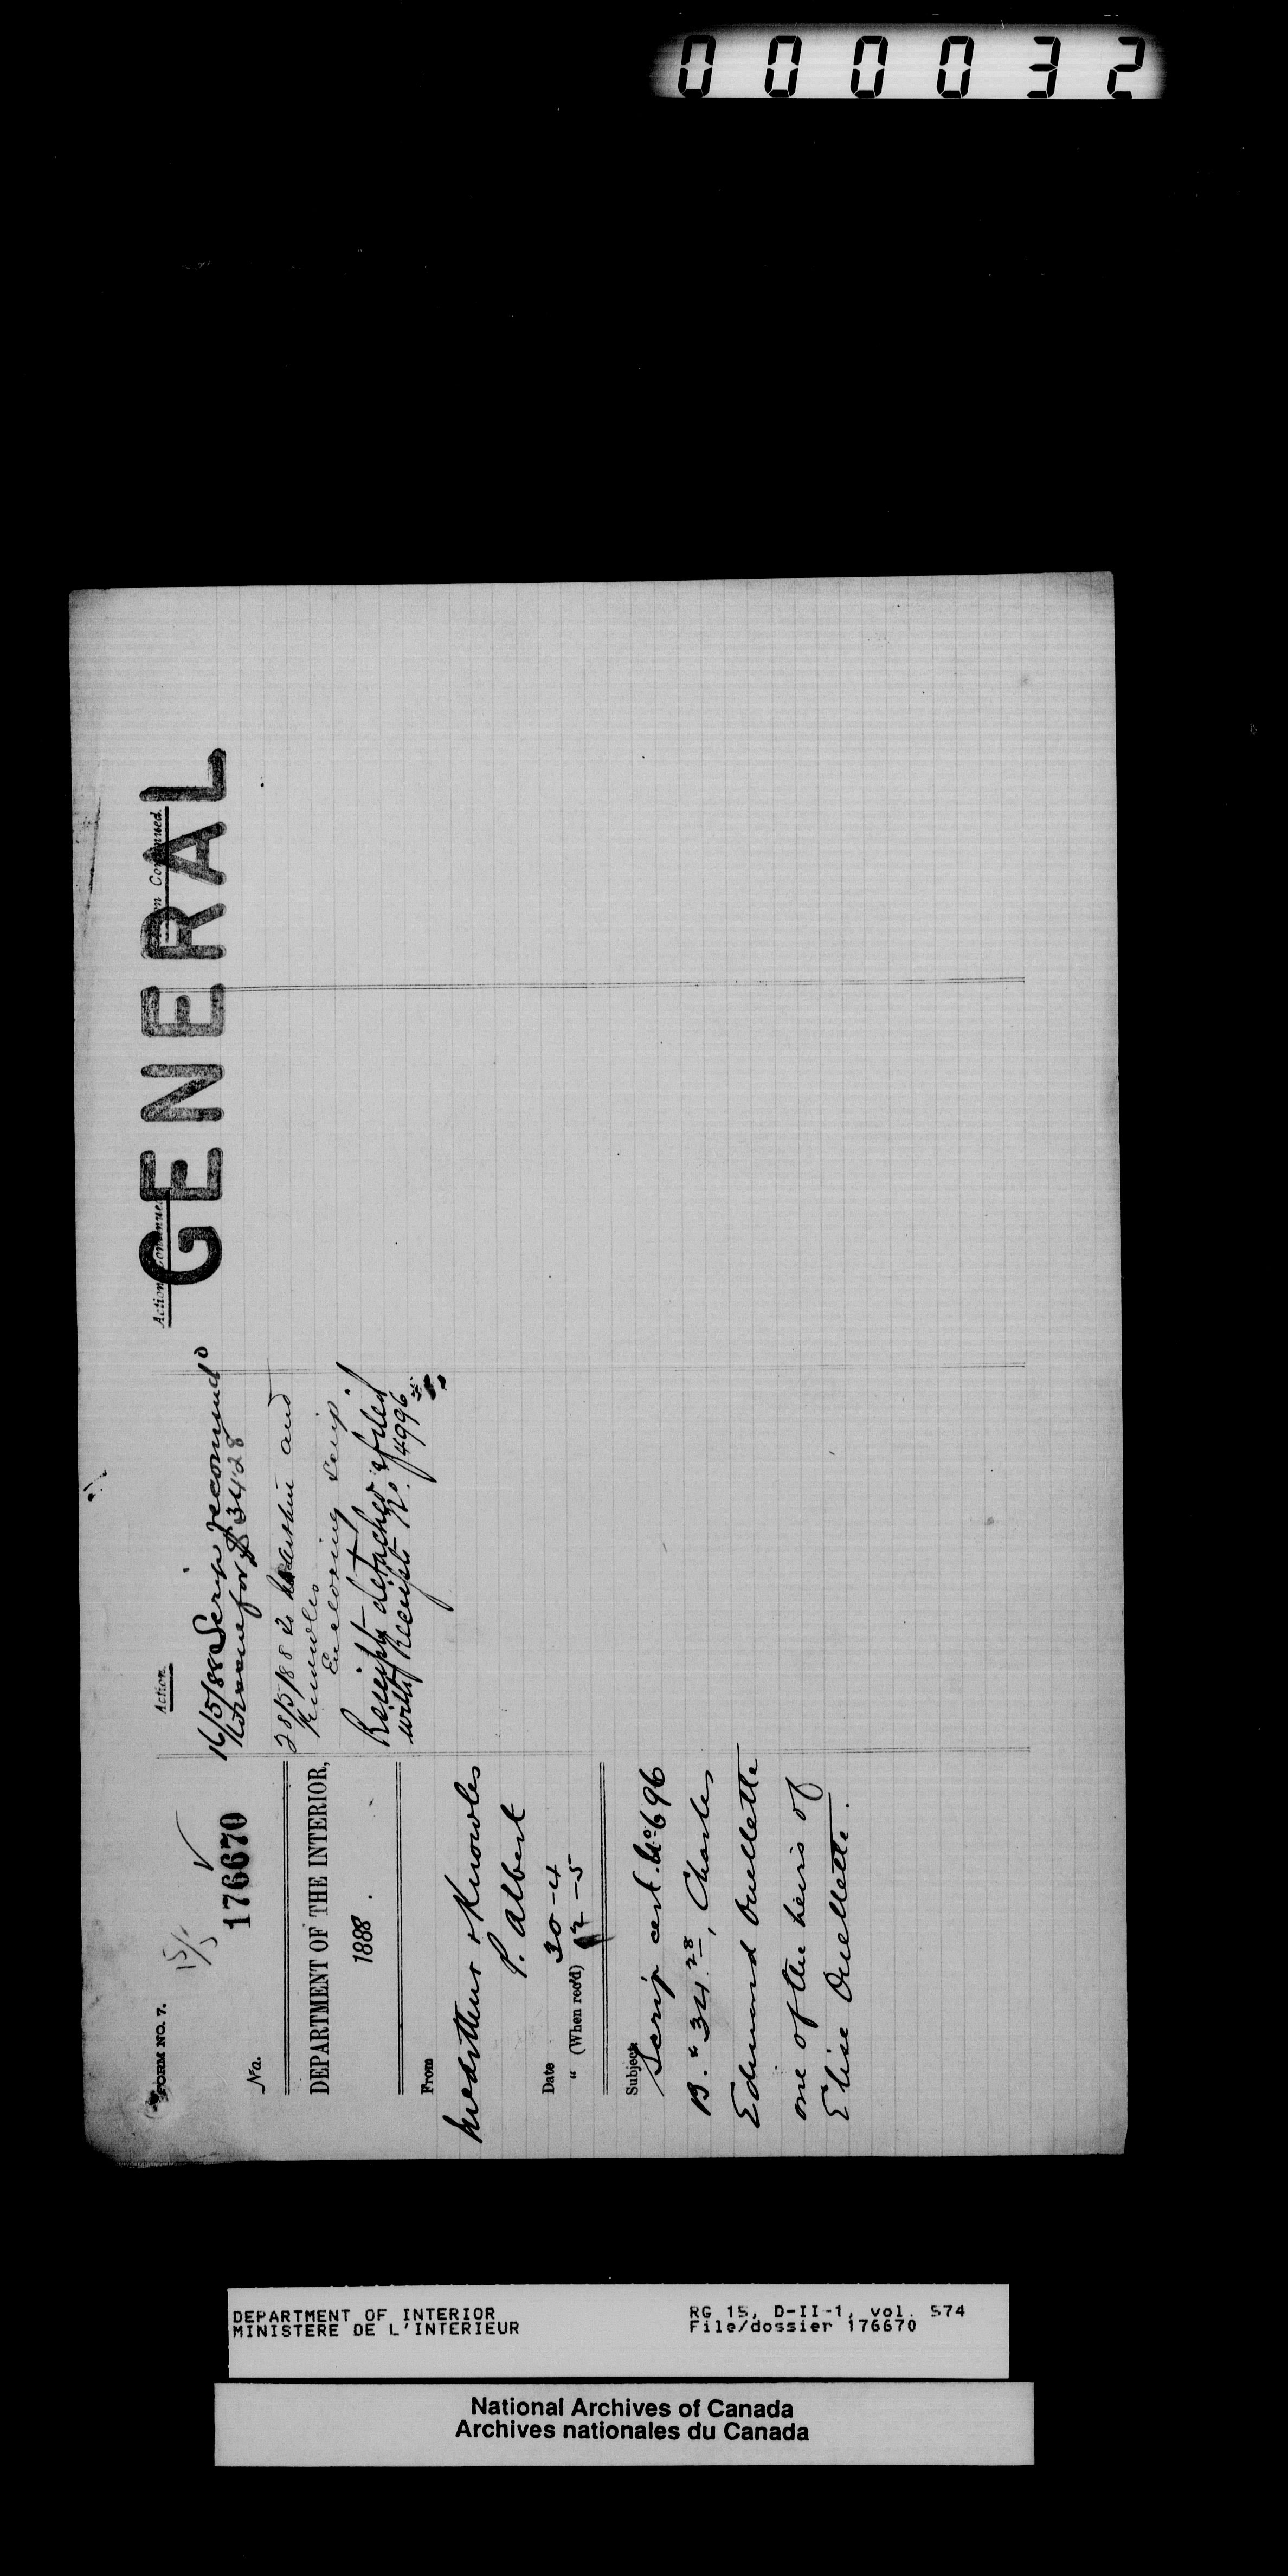 000032
FORM NO. 7.
15/5
No. 176670
DEPARTMENT OF THE INTERIOR,
1888.
From
McArthur & Knowles
P. Albert
Date 30-4
" (When recd) 12-5
Subject
Scrip cert. No 696
B. " 34.28, Charles
Edmund Ouellette
one of the heirs of
Elise Ouellette.
Action
16/5/88 Scrip recommd
to issue for $ 3428
28/5/88 To McArthur and
Knowles
Enclosing Scrip.
Receipt detached & filed
with Receipt No. 4996
Action Continued
Action Continued
GENERAL
DEPARTMENT OF INTERIOR
MINISTERE DE L'INTERIEUR
RG 15, D-II-1, vol. 574
File/dossier 176670
National Archives of Canada
Archives nationales du Canada